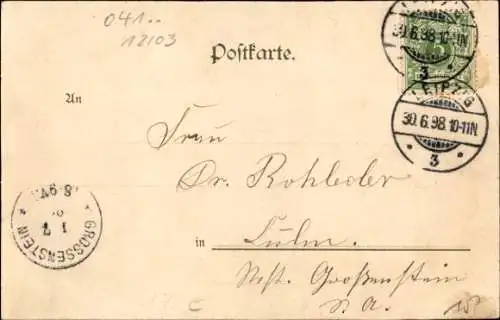 041..
12103
LEIPZIG
30.6.98.10-11N.
3
Postkarte.
LEIPZIG
30.6.98.10-11N.
3
An
Frau
Dr. Rohleder
8-9V.
1 7
GROSSENSTEIN
in Culm.
Post. Großenstein
S. A.